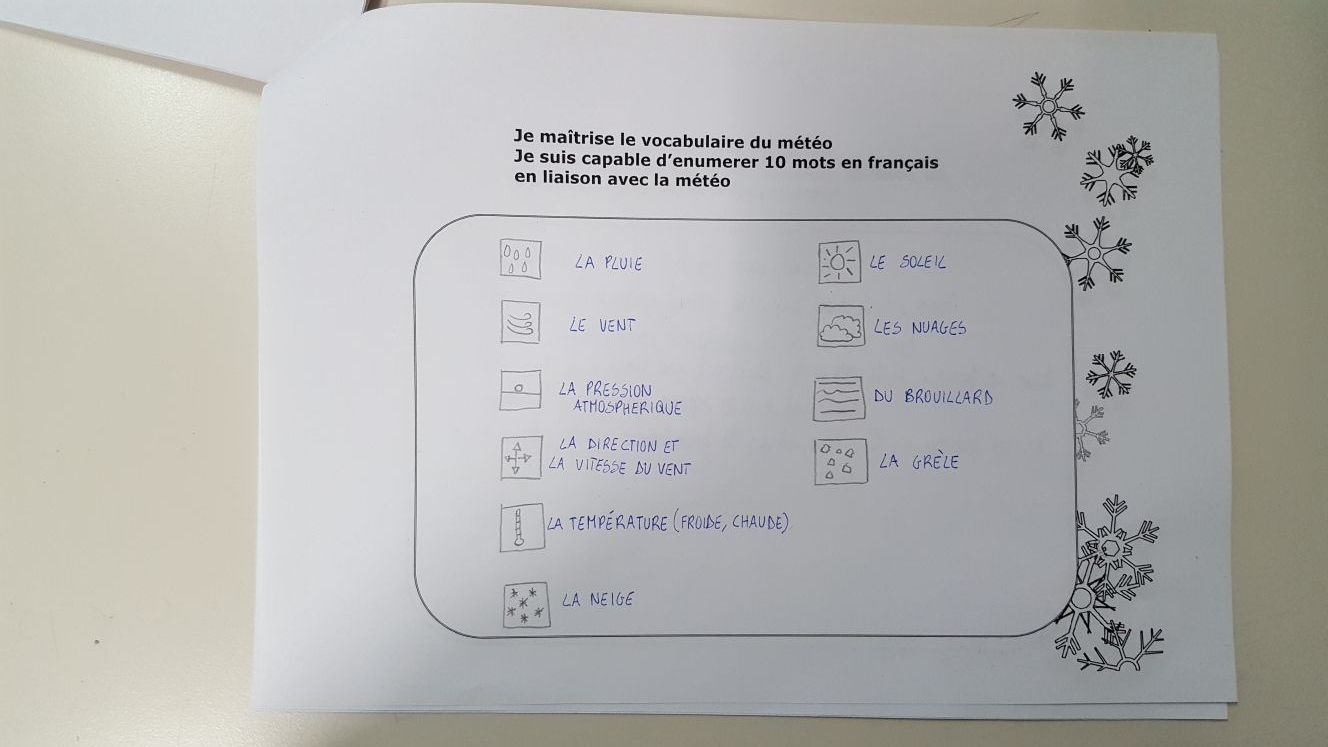 Je maîtrise le vocabulaire du météo
Je suis capable d'enumerer 10 mots en français
en liaison avec la météo
LA PLUIE
LE VENT
LA PRESSION
ATMOSPHERIQUE
LA DIRECTION ET
LA VITESSE DU VENT
LA TEMPÉRATURE (FROIDE, CHAUDE)
LA NEIGE
LE SOLEIL
LES NUAGES
DU BROUILLARD
LA GRÈLE